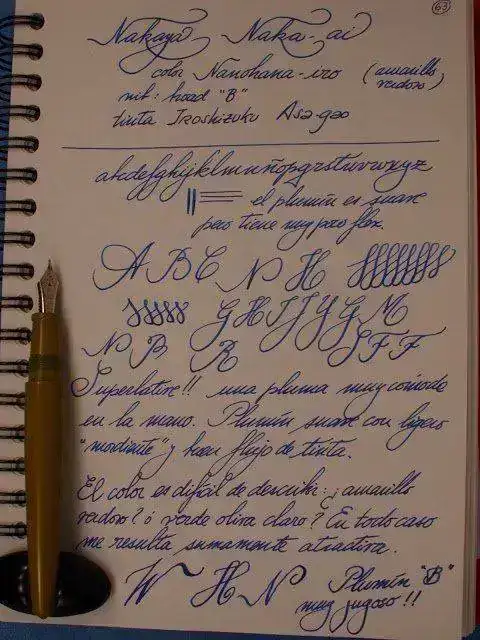 63
Nakaya - Naka-ai
color Nanohana-iro (amarillo
verdoso)
nib: broad "B"
tinta Iroshizuku Asa-gao
abcdefghijklmnñopqrstuvwxyz
el plumín es suave
pero tiene muy poco flex.
A B C N H
G H I J Y G M
N B R S F F
Superlative!! una pluma muy cómoda
en la mano. Plumín suave con ligero
"mordiente" y buen flujo de tinta.
El color es difícil de describir: ¿amarillo
verdoso? ó ¿verde oliva claro? En todo caso
me resulta sumamente atractiva.
W H N Plumín "B"
muy jugoso!!